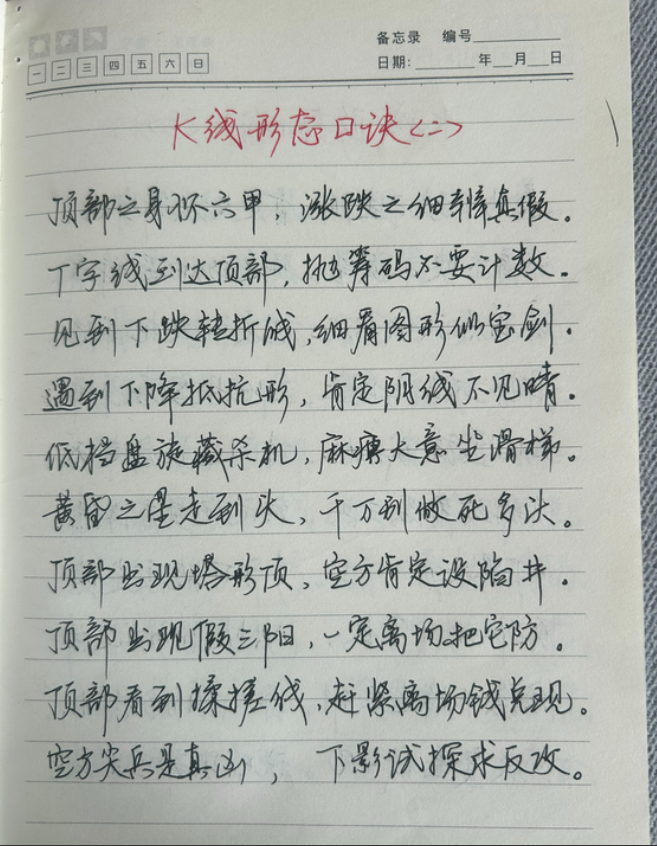 备忘录 编号
一 二 三 四 五 六 日
日期: 年 月 日
K线形态口诀<二>
顶部之身怀六甲，涨跌之细辩真假。
丁字线到达顶部，抛筹码不要计数。
见到下跌转折线，细看图形似宝剑。
遇到下降抵抗形，肯定阴线不见晴。
低档盘旋藏杀机，麻痹大意坐滑梯。
黄昏之星走到头，千万别做死多头。
顶部出现塔形顶，空方肯定设陷井。
顶部出现假三阳，一定离场把它防。
顶部看到揉搓线，赶紧离场钱兑现。
空方尖兵是真凶，下影试探求反攻。